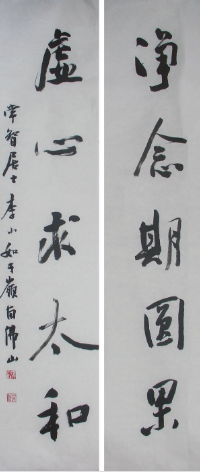 淨念期圓果
虛心求太和
常智居士李小如于嶺南佛山